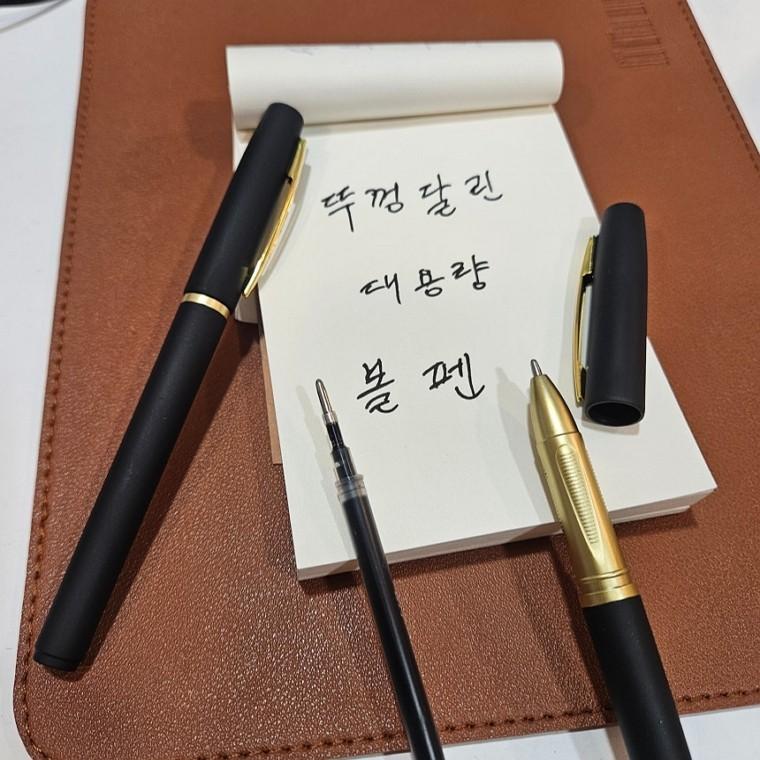 뚜껑달린
대용량
볼펜